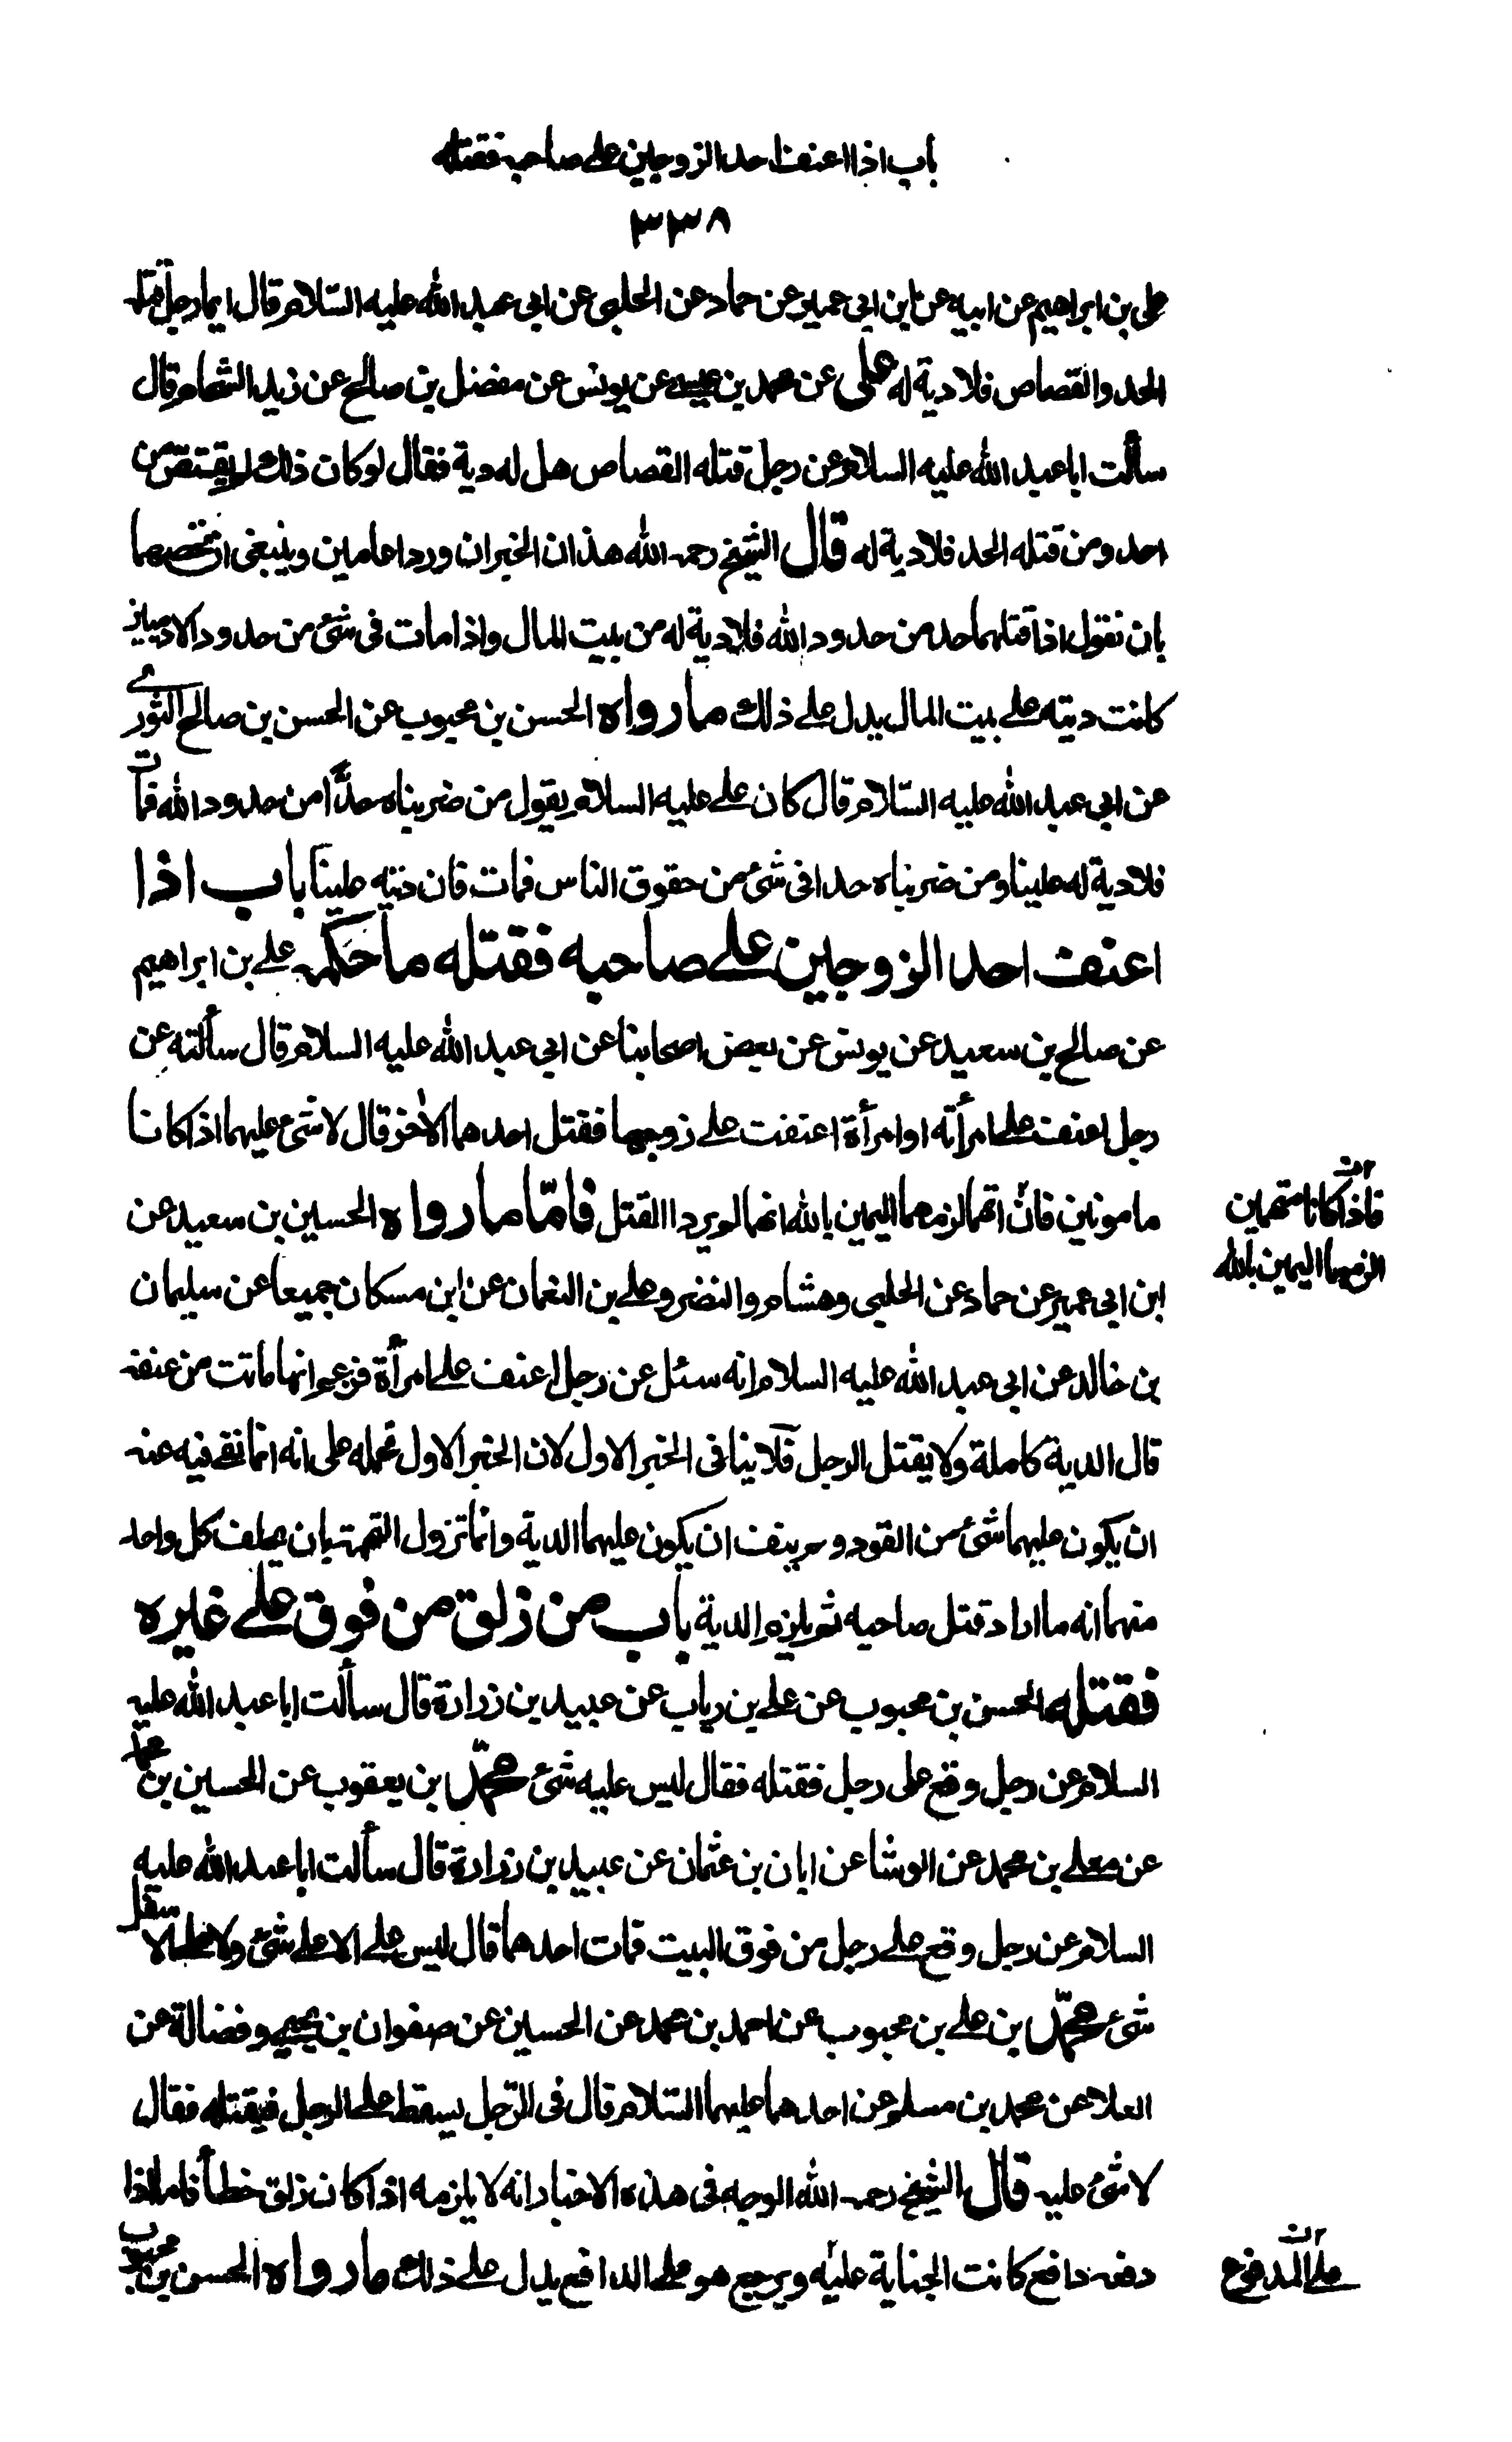 باب اذا اعنف احد الزوجين على صاحبه فقتله
٣٣٨
على بن ابراهيم عن ابيه عن ابن ابى عمير عن حماد عن الحلبى عن ابى عبد الله عليه السّلام قال ايما رجل قتله
الحد والقصاص فلا دية له على عن محمد بن عيسى عن يونس عن مفضل بن صالح عن زيد الشحام قال
سألت ابا عبد الله عليه السلام عن رجل قتله القصاص هل له دية فقال لو كان ذلك لم يقتص من
احد ومن قتله الحد فلا دية له قال الشيخ رحمه الله هذان الخبران وردا عامين وينبغى ان نخصهما
بان نقول اذا قتلهما حد من حدود الله فلا دية له من بيت المال واذا مات فى شئ من حدود الادميين
كانت ديته على بيت المال يدل على ذلك ما رواه الحسن بن محبوب عن الحسن بن صالح الثورى
عن ابى عبد الله عليه السّلام قال كان على عليه السلام يقول من ضربناه حدًّا من حدود الله فمات
فلا دية له علينا ومن ضربناه حدا فى شئ من حقوق الناس فمات فان ديته علينا باب اذا
اعنف احد الزوجين على صاحبه فقتله ما حكمه على بن ابراهيم
عن صالح بن سعيد عن يونس عن بعض اصحابنا عن ابى عبد الله عليه السلام قال سألته عن
رجل اعنف على امرأته او امرأة اعنفت على زوجها فقتل احدهما الاخر قال لا شئ عليهما اذا كانا
مامونين فان اتهما لزمهما اليمين بالله انهما لم يردا القتل فامّا ما رواه الحسين بن سعيد عن
فاذا كانا متهمين
الزمهما اليمين بالله
ابن ابى عمير عن حماد عن الحلبى وهشام والنضر وعلى بن النعمان عن ابن مسكان جميعا عن سليمان
بن خالد عن ابى عبد الله عليه السلام انه سئل عن رجل اعنف على امرأة فزعموا انها ماتت من عنفه
قال الدية كاملة ولا يقتل الرجل فلا ينافى الخبر الاول لان الخبر الاول نحمله على انه انما نفى فيه عنه
ان يكون عليهما شئ من القود ولم ينف ان يكون عليهما الدية وانما تزول التهمة بان يحلف كل واحد
منهما انه ما اراد قتل صاحبه ثم يلزمه الدية باب من زلق من فوق على غيره
فقتله الحسن بن محبوب عن على بن رياب عن عبيد بن زرارة قال سألت ابا عبد الله عليه
السلام عن رجل وقع على رجل فقتله فقال ليس عليه شئ محمّد بن يعقوب عن الحسين بن محمد
عن معلى بن محمد عن الوشا عن ابان بن عثمان عن عبيد بن زرارة قال سألت ابا عبد الله عليه
السلام عن رجل وقع على رجل من فوق البيت فمات احدهما قال ليس على الاعلى شئ ولا على الاسفل
شئ محمّد بن على بن محبوب عن احمد بن محمد عن الحسين عن صفوان بن يحيى وفضالة عن
العلا عن محمد بن مسلم عن احدهما عليهما السّلام قال فى الرّجل يسقط على الرجل فيقتله فقال
لا شئ عليه قال الشيخ رحمه الله الوجه فى هذه الاخبار انه لا يلزمه اذا كان زلق خطأ فاما اذا
دفعه دافع كانت الجناية عليه ويرجع هو على الدافع يدل على ذلك ما رواه الحسن بن محبوب
على المدفوع